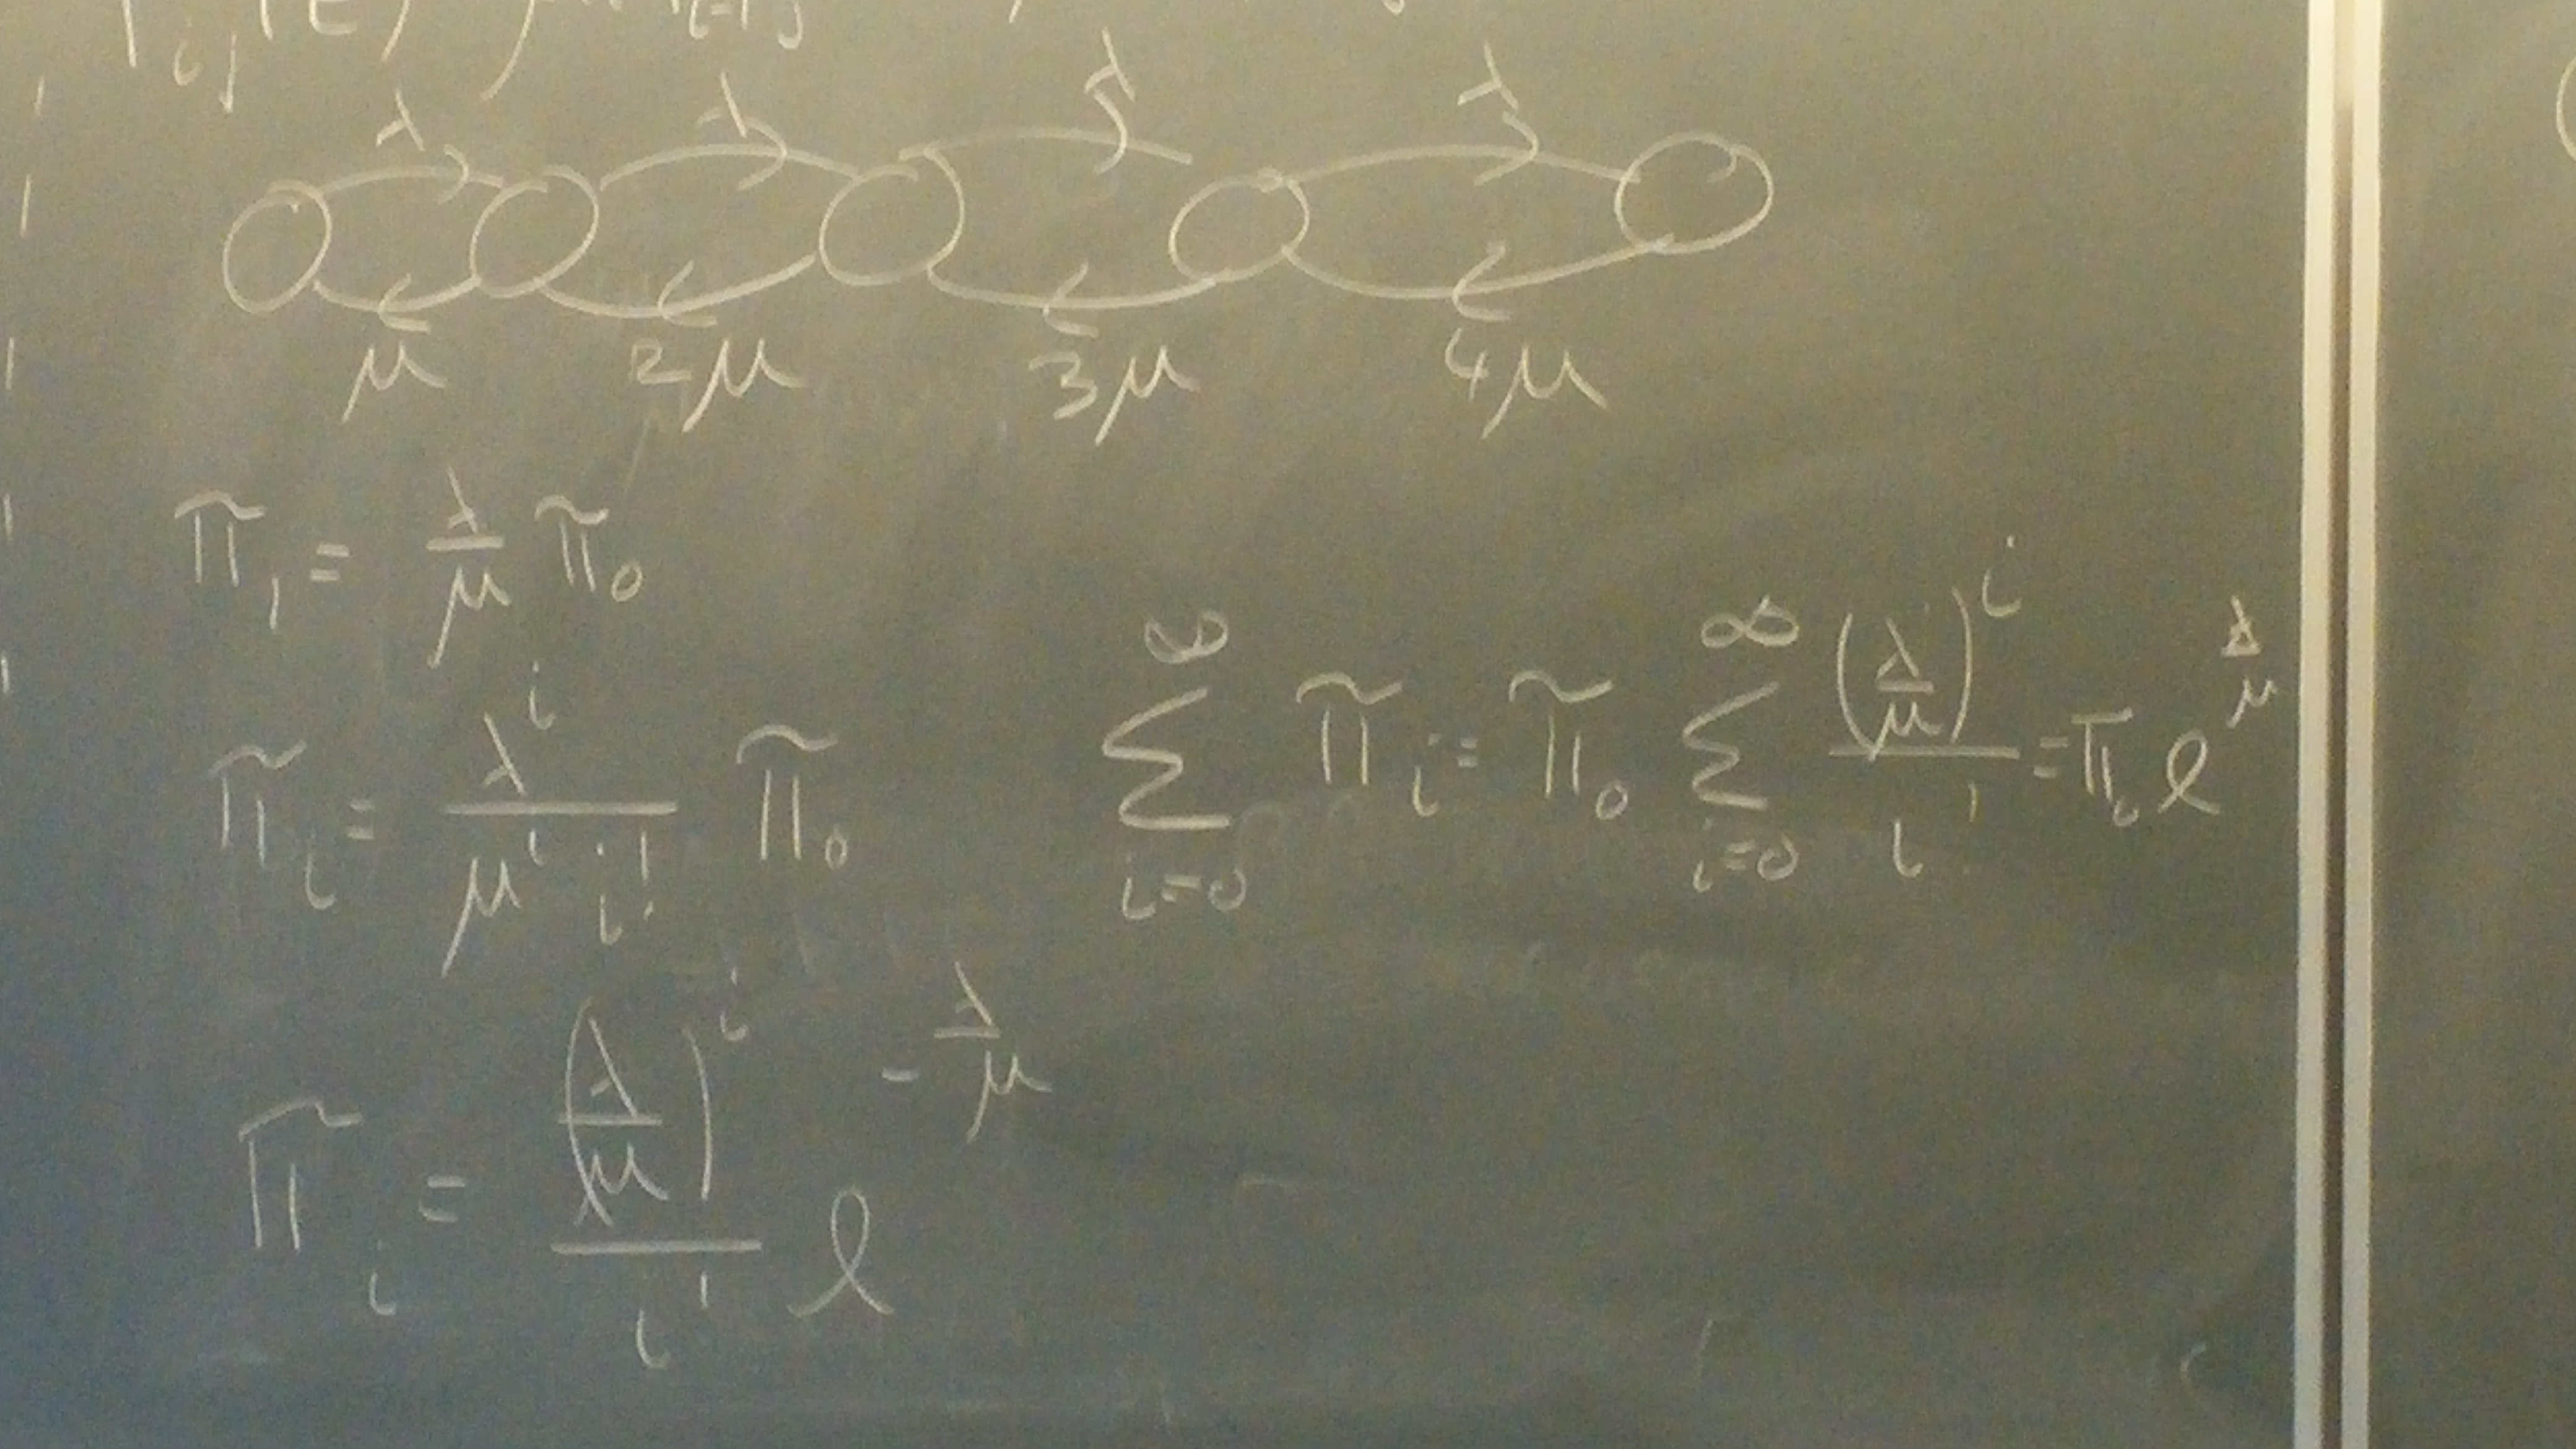 λ λ λ λ
μ 2μ 3μ 4μ
π₁ = λ/μ π₀
πᵢ = λⁱ/(μⁱ i!) π₀
∑_{i=0}^{∞} πᵢ = π₀ ∑_{i=0}^{∞} (λ/μ)ⁱ/i! = π₀ e^{λ/μ}
πᵢ = (λ/μ)ⁱ/i! e^{-λ/μ}